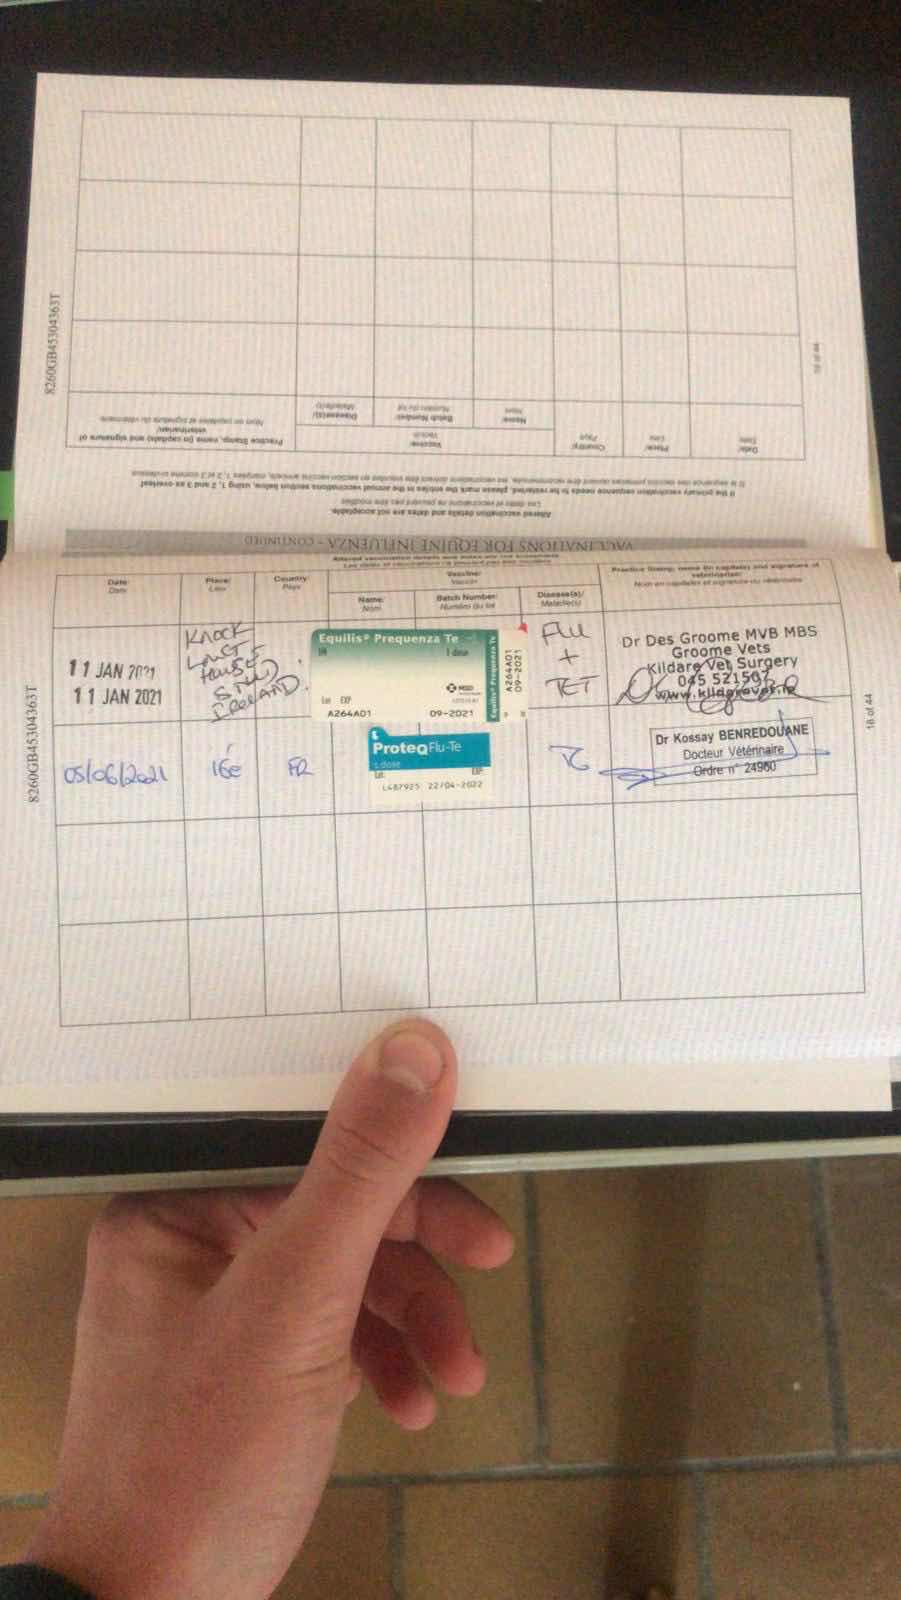 8260GB45304363T
18 of 44
Date/
Date
Place/
Lieu
Country/
Pays
Vaccine/
Vaccin
Name/
Nom
Batch Number/
Numéro du lot
Disease(s)/
Maladie(s)
Practice Stamp, name (in capitals) and signature of
veterinarian/
Nom en capitales et signature du vétérinaire
If the primary vaccination sequence needs to be restarted, please mark the entries in the annual vaccinations section below, using 1, 2 and 3 as overleaf
Altered vaccination details and dates are not acceptable.
Les dates et vaccinations ne peuvent pas être modifiés
VACCINATIONS FOR EQUINE INFLUENZA - CONTINUED
Altered vaccination details and dates are not acceptable.
Date:
Date
Place:
Lieu
Country:
Pays
Vaccine:
Vaccin
Name:
Nom
Batch Number:
Numéro du lot
Disease(s)/
Maladie(s)
Practice Stamp, name (in capitals) and signature of
veterinarian:
Nom en capitales et signature du vétérinaire
11 JAN 2021
11 JAN 2021
KNOCK
LONG
HOUSE
STUD
IRELAND.
Equilis® Prequenza Te
1 dose
MSD
Lot EXP
A264A01 09-2021
Equilis® Prequenza Te
A264A01
09-2021
FLU
+
TET
Dr Des Groome MVB MBS
Groome Vets
Kildare Vet Surgery
045 521507
www.kildarevet.ie
05/06/2021
FR
ProteqFlu-Te
1 dose
Lot: EXP:
L487925 22/04-2022
TG
Dr Kossay BENREDOUANE
Docteur Vétérinaire
Ordre n° 24960
8260GB45304363T
18 of 44